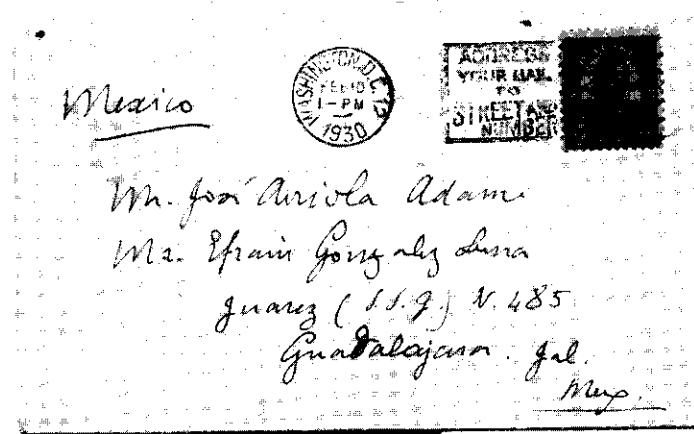 WASHINGTON, D.C.
FEB 10
1-PM
1930
ADDRESS
YOUR MAIL
TO
STREET AND
NUMBER
Mexico
Mr. José Arriola Adame
Mr. Efrain Gonzalez Luna
Juarez ( S.S.g.) N. 485
Guadalajara. Jal.
Mex.